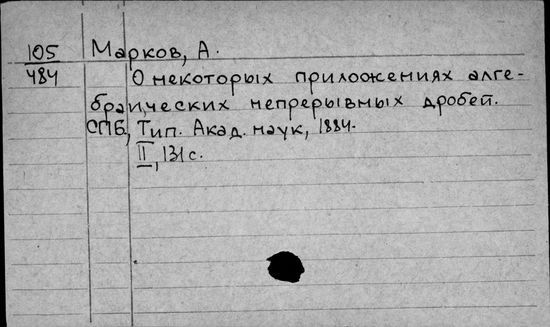 105 Марков, А.
484 О некоторых приложениях алге-
браических непрерывных дробей.
СПБ, Тип. Акад. наук, 1884.
II, 131 с.